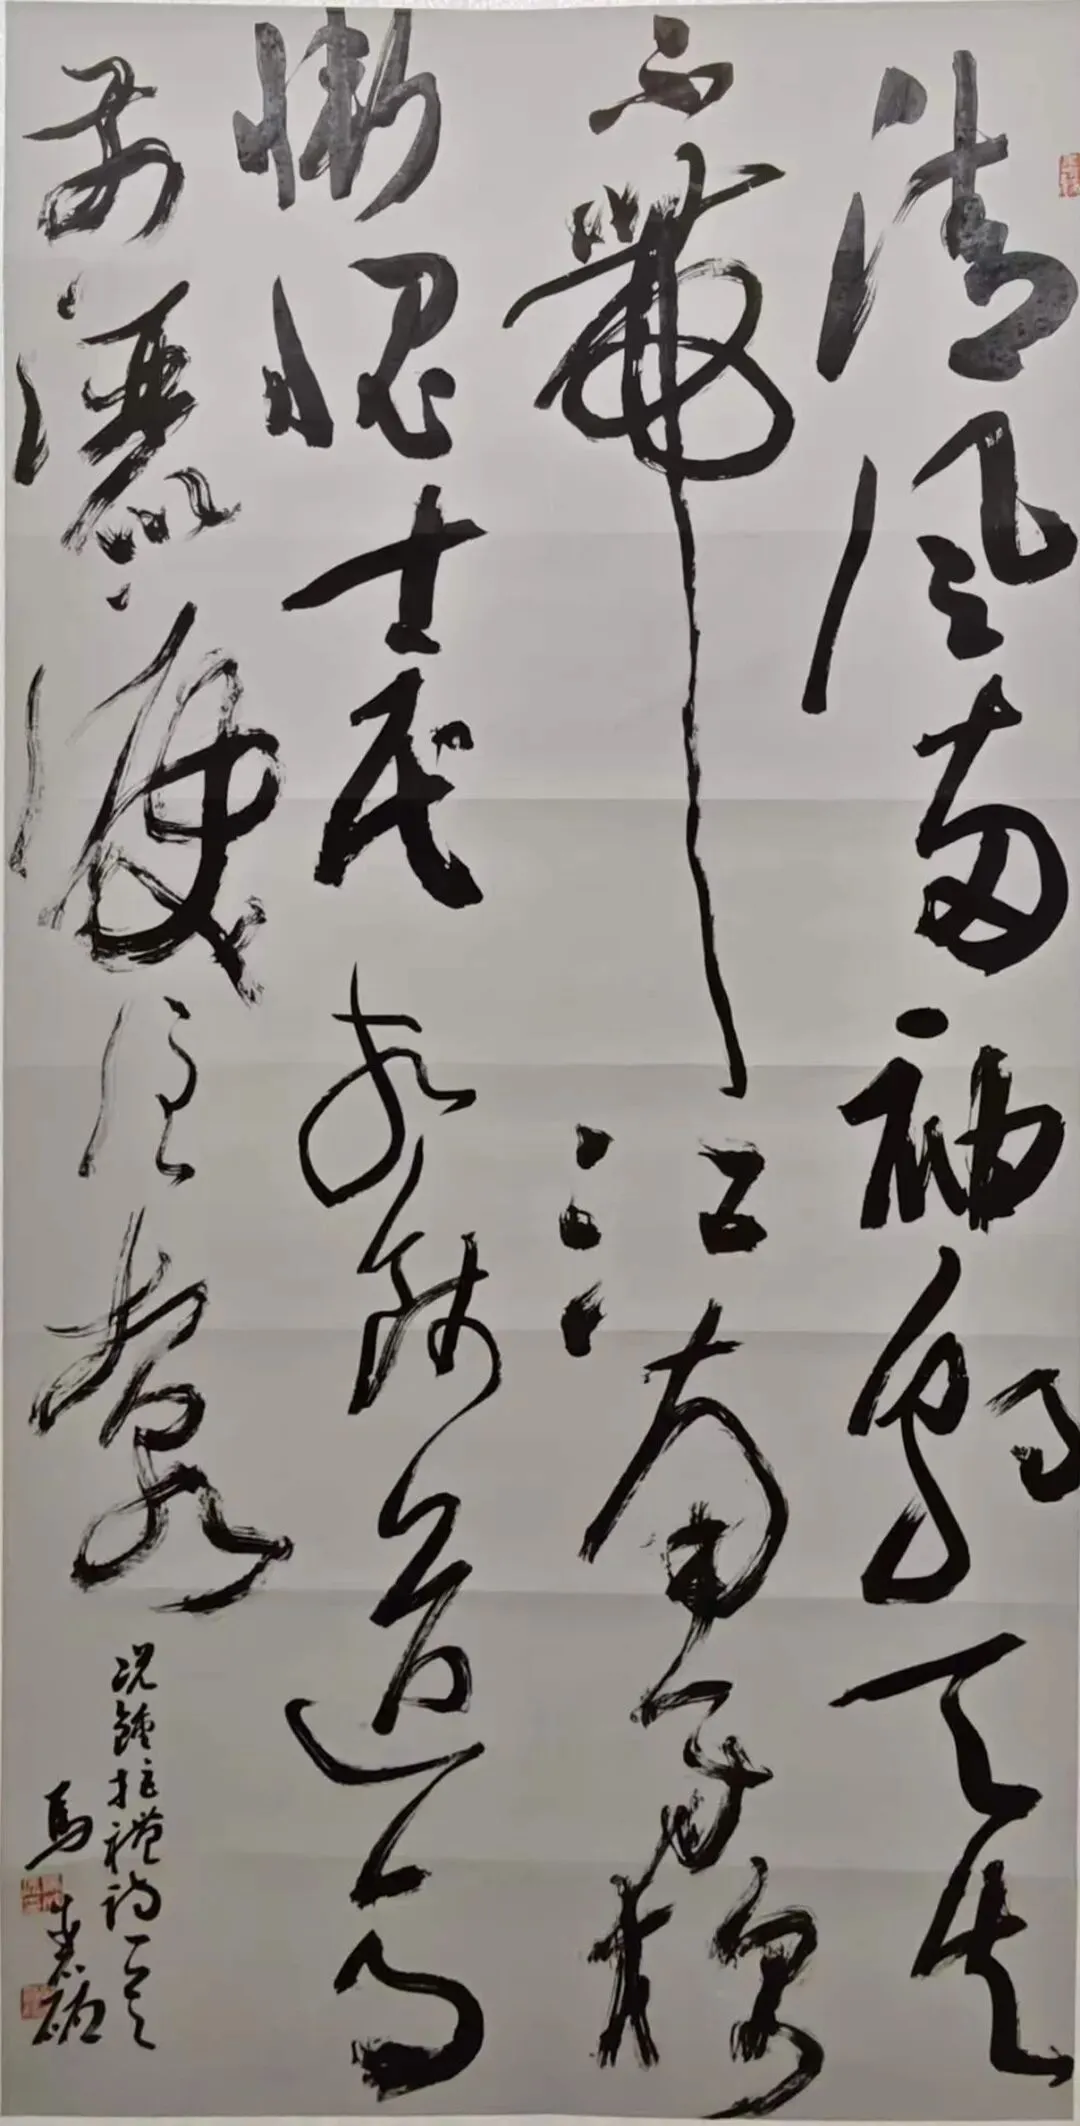 清風两袖朝天去
不帶江南一寸棉
慚愧士民相餞送馬
前灑淚注如泉
况鍾拒禮詩一首
馬